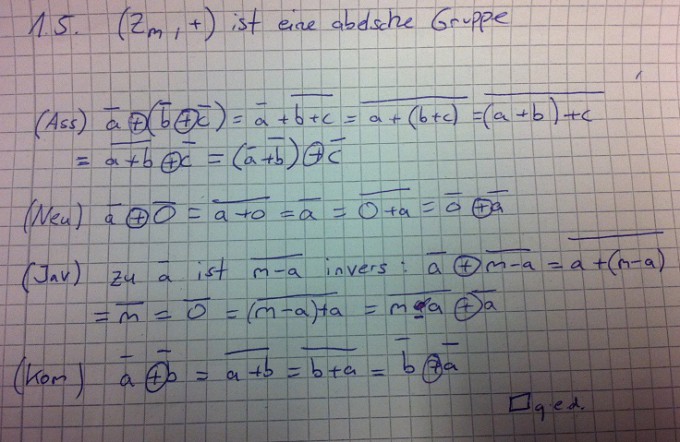 1.5. (Z_m, +) ist eine abelsche Gruppe
(Ass) a̅ ⊕ (b̅ ⊕ c̅) = a̅ + \overline{b+c} = \overline{a+(b+c)} = \overline{(a+b)+c}
= \overline{a+b} ⊕ c̅ = (a̅+b̅) ⊕ c̅
(Neu) a̅ ⊕ 0̅ = \overline{a+0} = a̅ = \overline{0+a} = 0̅ ⊕ a̅
(Inv) zu a̅ ist \overline{m-a} invers: a̅ ⊕ \overline{m-a} = \overline{a+(m-a)}
= m̅ = 0̅ = \overline{(m-a)+a} = \overline{m-a} ⊕ a̅
(Kom) a̅ ⊕ b̅ = \overline{a+b} = \overline{b+a} = b̅ ⊕ a̅
□ q.e.d.